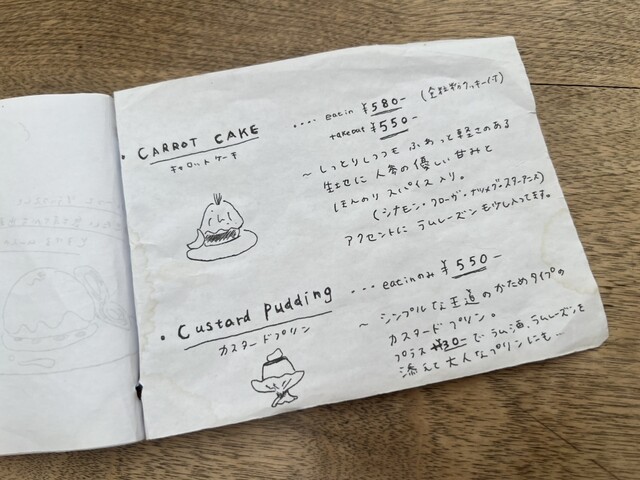 ・CARROT CAKE
キャロットケーキ
・・・・ eat in ¥580- (全粒粉クッキー付)
takeout ¥550-
～しっとりしつつも ふわっと軽さのある
生地に 人参の優しい甘みと
ほんのり スパイス入り。
(シナモン・クローブ・ナツメグ・スターアニス)
アクセントに ラムレーズンも少し入ってます。
・Custard pudding
カスタードプリン
・・・ eat inのみ ¥550-
～シンプルな王道のかためタイプの
カスタードプリン。
プラス ¥30-で ラム酒、ラムレーズンを
添えて 大人なプリンにも…